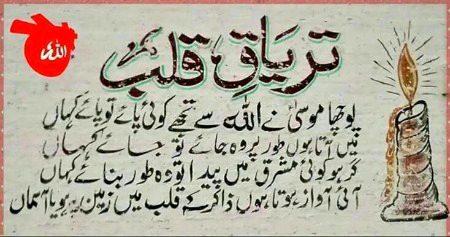 اللہ
تریاقِ قلب
پوچھا موسیٰ نے اللہ سے تجھے کوئی پائے تو پائے کہاں
میں آتا ہوں طور پر وہ جائے تو جائے کہاں
گر ہو کوئی مشرق میں پیدا تو وہ طور بنائے کہاں
آئی آواز ہوتا ہوں ذاکر کے قلب میں زمین ہو یا آسماں